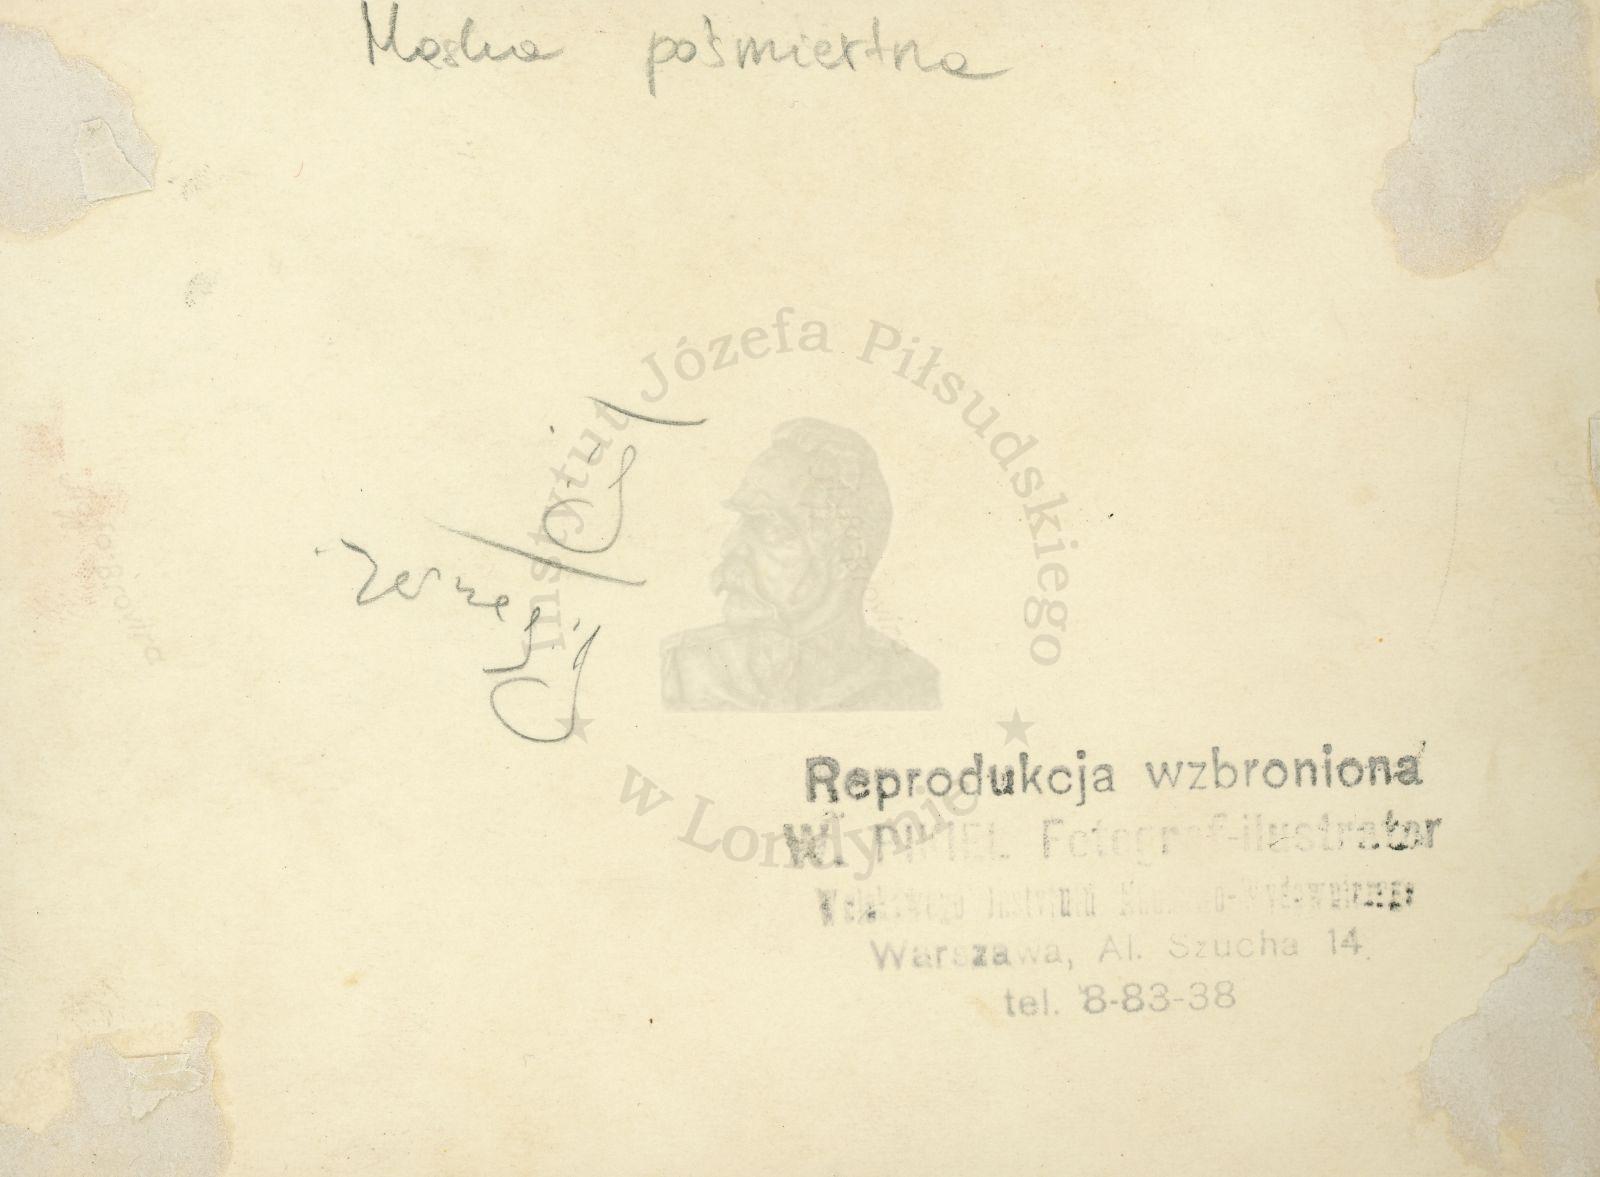 Maska pośmiertna
Instytut Józefa Piłsudskiego
w Londynie
Reprodukcja wzbroniona
Wł. PIKIEL Fotograf-ilustrator
Wojskowego Instytutu Naukowo-Wydawniczego
Warszawa, Al. Szucha 14.
tel. 8-83-38